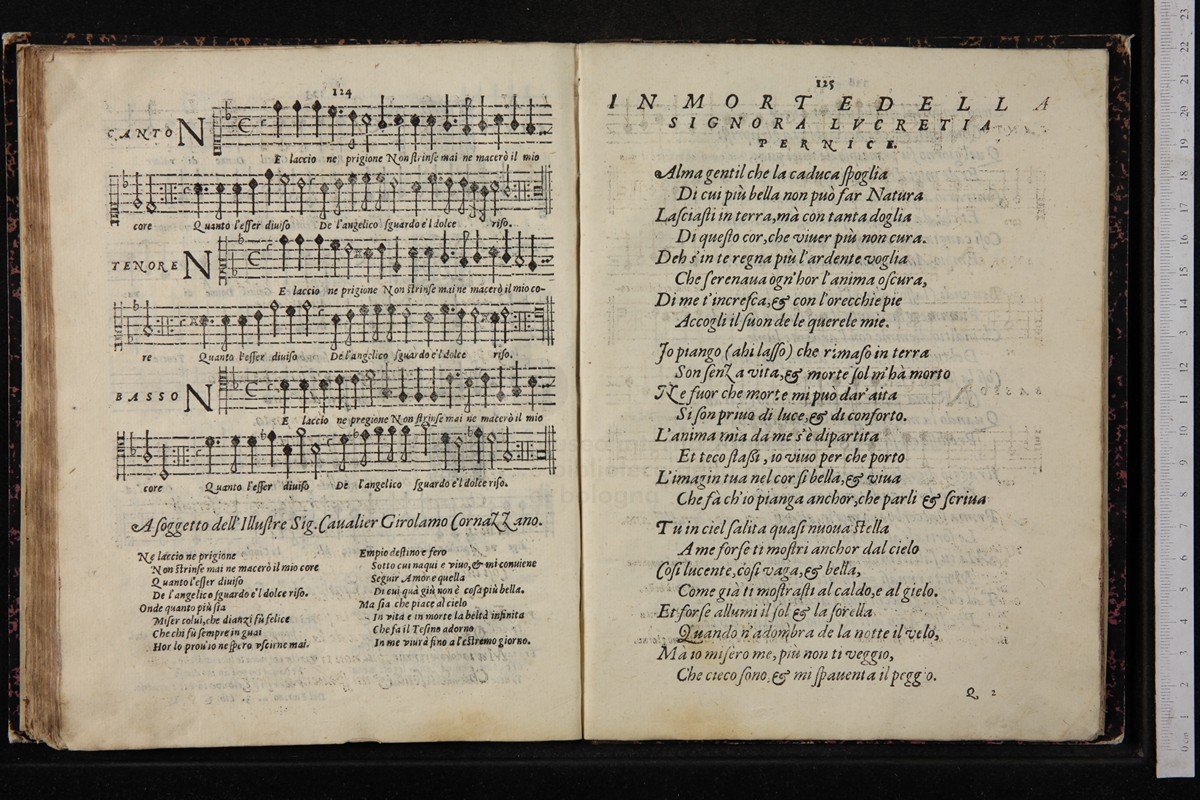 124
CANTO N
E laccio ne prigione Non ſtrinſe mai ne macerò il mio
core Quanto l'eſſer diuiſo De l'angelico ſguardo e'l dolce riſo.
TENORE N
E laccio ne prigione Non ſtrinſe mai ne macerò il mio co-
re Quanto l'eſſer diuiſo De l'angelico ſguardo e'l dolce riſo.
BASSO N
E laccio ne pregione Non ſtrinſe mai ne macerò il mio
core Quanto l'eſſer diuiſo De l'angelico ſguardo e'l dolce riſo.
A ſoggetto dell'Illuſtre Sig. Caualier Girolamo Cornazzano.
Ne laccio ne prigione
Non ſtrinſe mai ne macerò il mio core
Quanto l'eſſer diuiſo
De l'angelico ſguardo e'l dolce riſo.
Onde quanto più ſia
Miſer colui, che dianzi fù felice
Che chi fù ſempre in guai
Hor lo prouo io ne ſpero vſcirne mai.
Empio deſtino e fero
Sotto cui naqui e viuo, & mi conuiene
Seguir Amor e quella
Di cui quà giù non è coſa più bella.
Ma ſia che piace al cielo
In vita e in morte la beltà infinita
Che fa il Teſino adorno
In me viurà fino a l'eſtremo giorno.
125
IN MORTE DELLA
SIGNORA LVCRETIA
PERNICE.
Alma gentil che la caduca ſpoglia
Di cui più bella non può far Natura
Laſciaſti in terra, mà con tanta doglia
Di queſto cor, che viuer più non cura.
Deh s'in te regna più l'ardente voglia
Che ſerenaua ogn'hor l'anima oſcura,
Di me t'increſca, & con l'orecchie pie
Accogli il ſuon de le querele mie.
Io piango (ahi laſſo) che rimaſo in terra
Son ſenza vita, & morte ſol m'hà morto
Ne fuor che morte mi può dar'aita
Si ſon priuo di luce, & di conforto.
L'anima mia da me s'è dipartita
Et teco ſtaſsi, io viuo per che porto
L'imagin tua nel cor ſi bella, & viua
Che fà ch'io pianga anchor, che parli & ſcriua
Tu in ciel ſalita quaſi nuoua ſtella
A me forſe ti moſtri anchor dal cielo
Coſi lucente, coſi vaga, & bella,
Come già ti moſtraſti al caldo, e al gielo.
Et forſe allumi il ſol & la ſorella
Quando n'adombra de la notte il velo,
Mà io miſero me, più non ti veggio,
Che cieco ſono, & mi ſpauenta il peggio.
Q 2